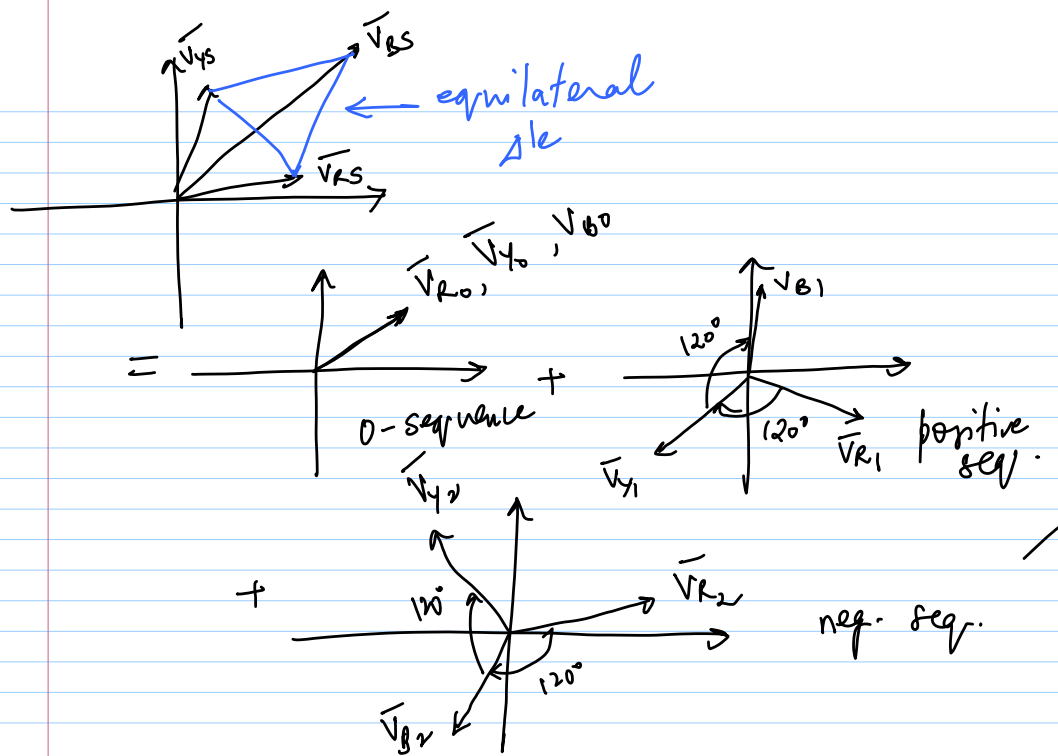 V̅YS
V̅BS
equilateral
Δle
V̅RS
V̅R0, V̅Y0, VB0
=
0-sequence
+
VB1
120°
120°
V̅Y1
V̅R1
positive
seq.
+
V̅Y2
120°
V̅R2
120°
V̅B2
neg. seq.